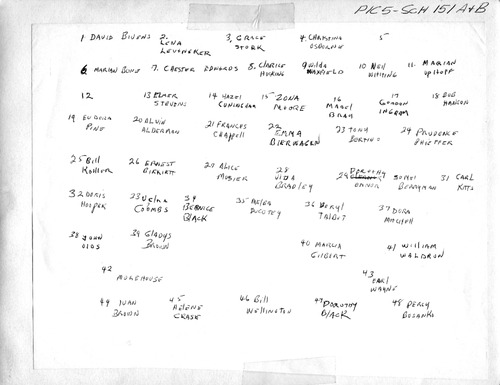 PIC5-SCH 151 A+B
1 DAVID BIVENS 2. LENA 3. GRACE STORK 4. CHRISTINA OSBORNE 5
6 MARIAN BONE 7. CHESTER EDWARDS 8. CLARICE 9 WILDA MAXFIELD 10 NELL WHITING 11. MARIAN UPHOFF
12 13 ELMER STEVENS 14 HAZEL CUNINGHAM 15 ZONA MOORE 16 MABEL BRAY 17 GORDON INGROM 18 BOB HANSON
19 EUDORA PINE 20 ALVIN ALDERMAN 21 FRANCES CHAPPELL 22 EMMA BIERHAGEN 23 TONY 24 PRUDENCE PHIEFFER
25 Bill 26 ERNEST 27 ALICE MOSIER 28 BRADLEY 29 DOROTHY CONNER 30 BERRYMAN 31 CARL KITTS
32 DORIS HOOPER 33 VELMA COOMBS 34 BERNICE BLACK 35 36 BERYL TALBOT 37 DORA MITCHELL
38 JOHN OLDS 39 GLADYS BROWN 40 MARCIA GILBERT 41 WILLIAM WALDRON
42 MOREHOUSE 43 EARL WAYNE
44 IVAN BROWN 45 HELENE CREASE 46 Bill WELLINGTON 47 DOROTHY BLACK 48 PERCY BOSANKO